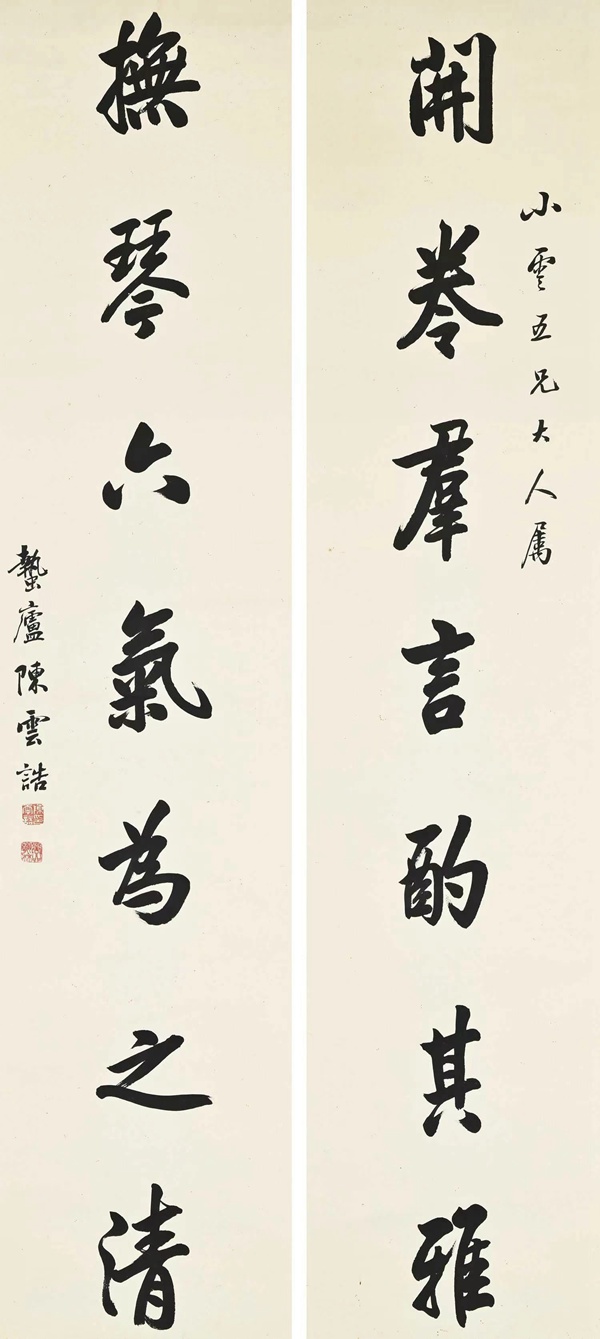 開卷羣言酌其雅
小雲五兄大人属
撫琴六氣為之清
蟄廬陳雲誥